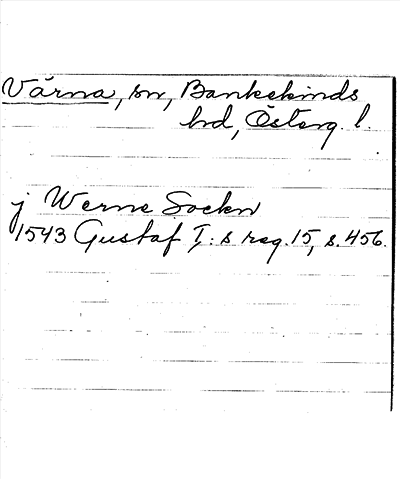 Värna, sn, Bankekinds
hd, Österg l.
j Werne Sockn
1543 Gustaf I:s reg. 15, s. 456.